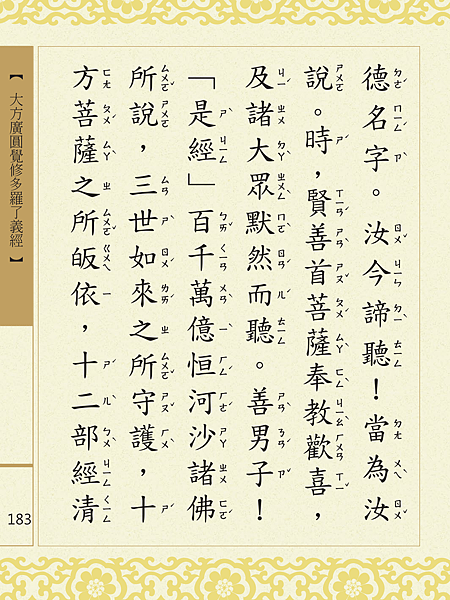 德名字。汝今諦聽！當為汝
說。時，賢善首菩薩奉教歡喜，
及諸大眾默然而聽。善男子！
「是經」百千萬億恒河沙諸佛
所說，三世如來之所守護，十
方菩薩之所皈依，十二部經清
【 大方廣圓覺修多羅了義經 】
183